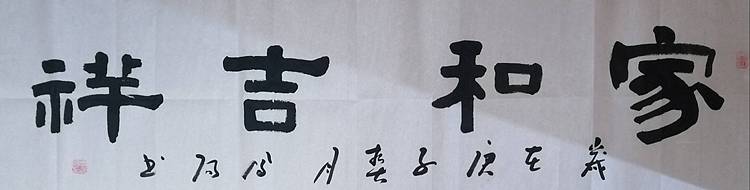 家和吉祥
歲在庚子春月
书